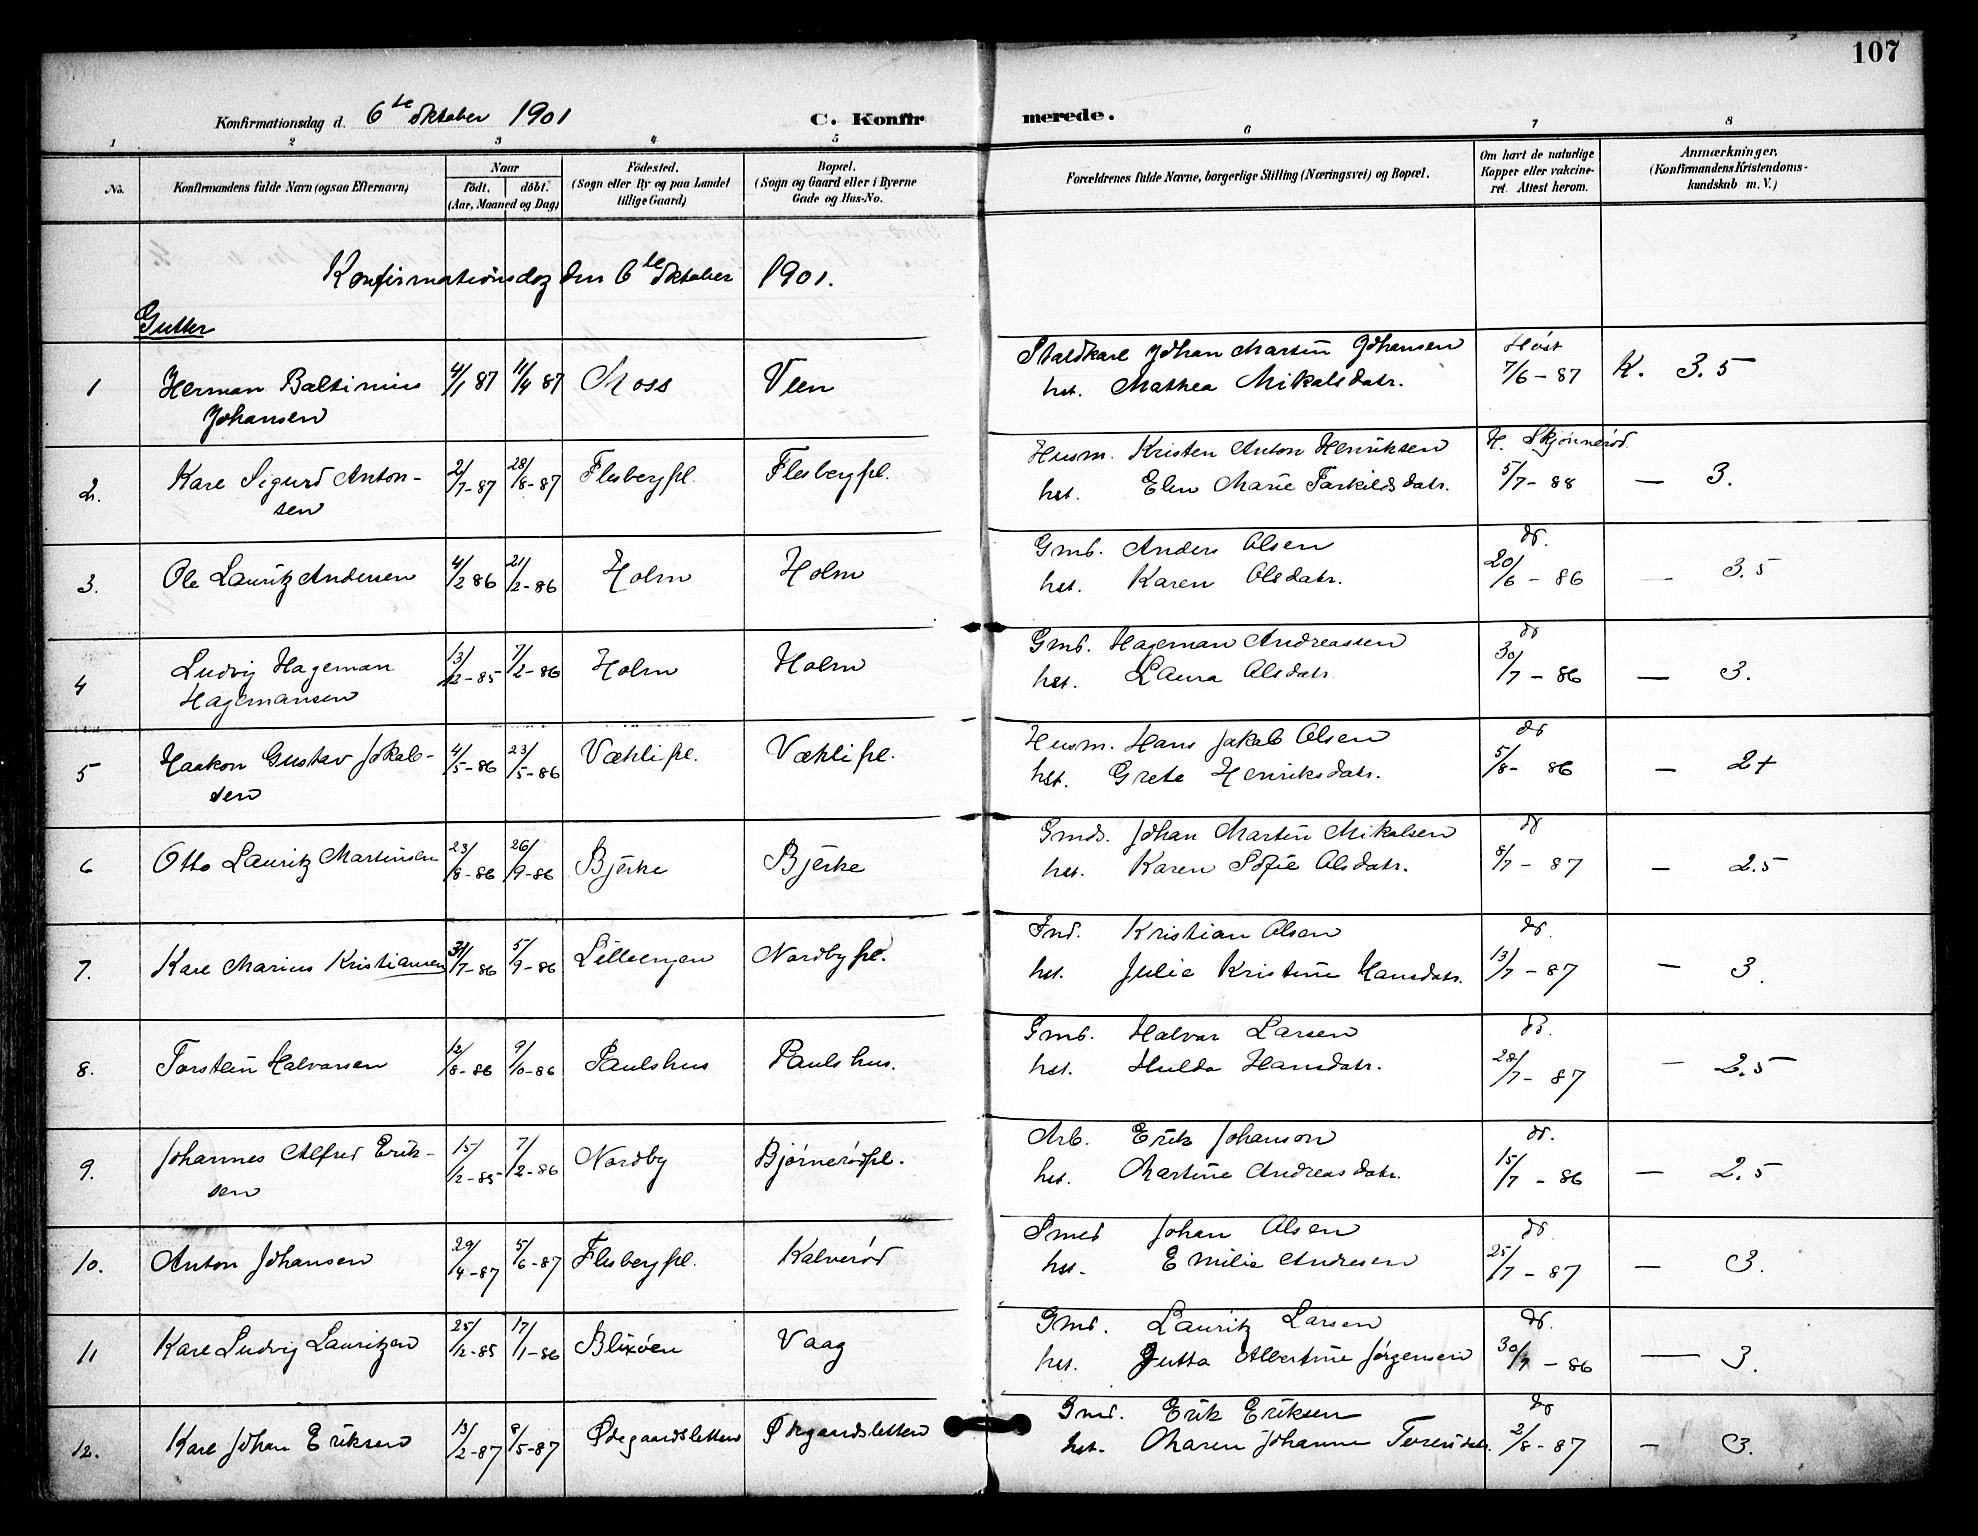 107
Konfirmationsdag d. 6te Oktober 1901
C. Konfirmerede.
1 2 3 4 5 6 7 8
No.
Konfirmandens fulde Navn (ogsaa Efternavn)
Naar
födt. döbt.
(Aar, Maaned og Dag)
Födested.
(Sogn eller By og paa Landet
tillige Gaard)
Bopæl.
(Sogn og Gaard eller i Byerne
Gade og Hus-No.
Forældrenes fulde Navne, borgerlige Stilling (Næringsvei) og Bopæl.
Om havt de naturlige
Kopper eller vakcine-
ret. Attest herom.
Anmærkninger.
(Konfirmandens Kristendoms-
kundskab m. V.)
Konfirmationsdag den 6te Oktober 1901.
Gutter
Staldkarl Johan Martin Johansen Høst
1 Herman Baltinius 4/1 87 11/4 87 Moss Veen hst. Mathea Mikalsdatr. 7/6-87 K. 3.5
Johansen
Husm. Kristen Anton Henriksen H. Skjønnerød
2. Karl Sigurd Anton- 2/7-87 28/8-87 Flesbergpl. Flesbergpl. hst. Elen Marie Tarkildsdatr. 5/7-88 — 3.
sen
Gmb. Anders Olsen do.
3. Ole Lauritz Andersen 4/2 86 21/2-86 Holm Holm hst. Karen Olsdatr. 20/6-86 — 3.5
Gmb. Hageman Andreassen do
4 Ludvig Hageman 13/12-85 7/2-86 Holm Holm hst. Laura Olsdatr. 30/7-86 — 3.
Hagemansen
Husm. Hans Jakob Olsen do
5 Haakon Gustav Jakob- 4/5-86 23/5-86 Væhlipl. Væhlipl. hst. Grete Henriksdatr. 5/8-86 — 2+
sen
Gmds. Johan Martin Mikalsen do
6 Otto Lauritz Martinsen 23/8-86 26/9-86 Bjerke Bjerke hst. Karen Sofie Olsdatr. 8/7-87 — 2.5
Ind. Kristian Olsen do.
7. Karl Marius Kristiansen 31/7-86 5/9-86 Lilleengen Nordbypl. hst. Julie Kristine Hansdatr. 13/7-87 — 3.
Gmb. Halvor Larsen do.
8. Torstein Halvorsen 12/8-86 9/10-86 Paulshus Paulshus. hst. Hulda Hansdatr. 28/7-87 — 2.5
Arb. Erik Johanson do.
9. Johannes Alfred Erik- 15/12-85 7/2-86 Nordby Bjørnerødpl. hst. Martine Andreasdatr. 15/7-86 — 2.5
sen
Smed Johan Olsen do
10. Anton Johansen 29/4-87 5/6-87 Flesbergpl. Kalverød hst. Emilie Andresen 25/7-87 — 3.
Gmd. Lauritz Larsen do.
11 Karl Ludvig Lauritzen 25/12-85 17/1-86 Blixøen Vaag hst. Jutta Albertine Jørgensen 30/7-86 — 3.
Gmd. Erik Eriksen do
12. Karl Johan Eriksen 13/2-87 8/5-87 Ødegaardsletten Ødegaardsletten hst. Maren Johanne 2/8-87 — 3.